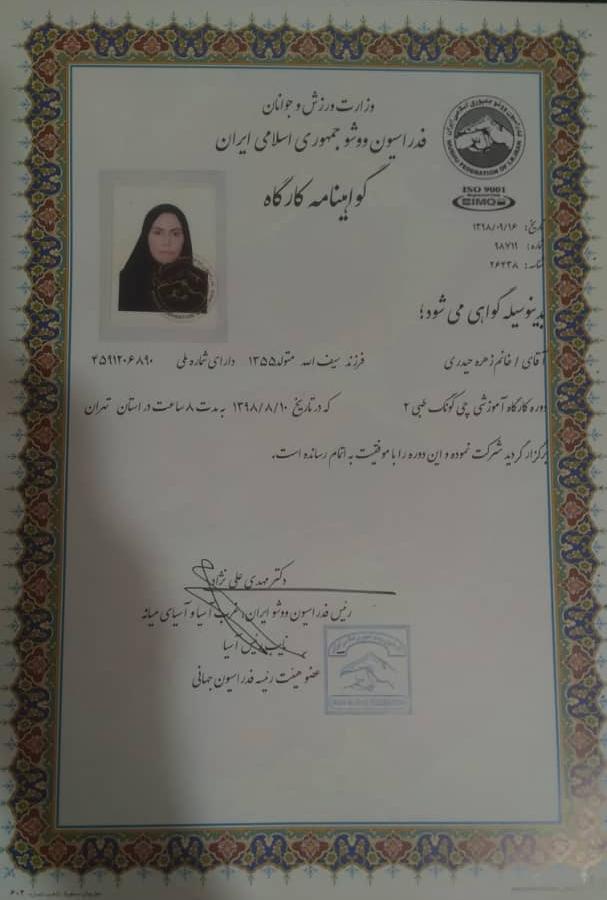 وزارت ورزش و جوانان
فدراسیون ووشو جمهوری اسلامی ایران
گواهینامه کارگاه
WUSHU FEDERATION OF I.R.IRAN
ISO 9001
SIMQ
تاریخ: ۱۳۹۸/۰۹/۱۶
شماره: ۹۸۷۱۱
شناسه: ۲۶۴۳۸
بدینوسیله گواهی می شود؛
آقای / خانم زهره حیدری فرزند سیف الله متولد ۱۳۵۵ دارای شماره ملی ۴۵۹۱۲۰۶۸۹۰
دوره کارگاه آموزشی چی کونگ طبی ۲ که در تاریخ ۱۳۹۸/۸/۱۰ به مدت ۸ ساعت در استان تهران
برگزار گردید شرکت نموده و این دوره را با موفقیت به اتمام رسانده است.
دکتر مهدی علی نژاد
رئیس فدراسیون ووشو ایران، غرب آسیا و آسیای میانه
نایب رئیس آسیا
عضو هیئت رئیسه فدراسیون جهانی